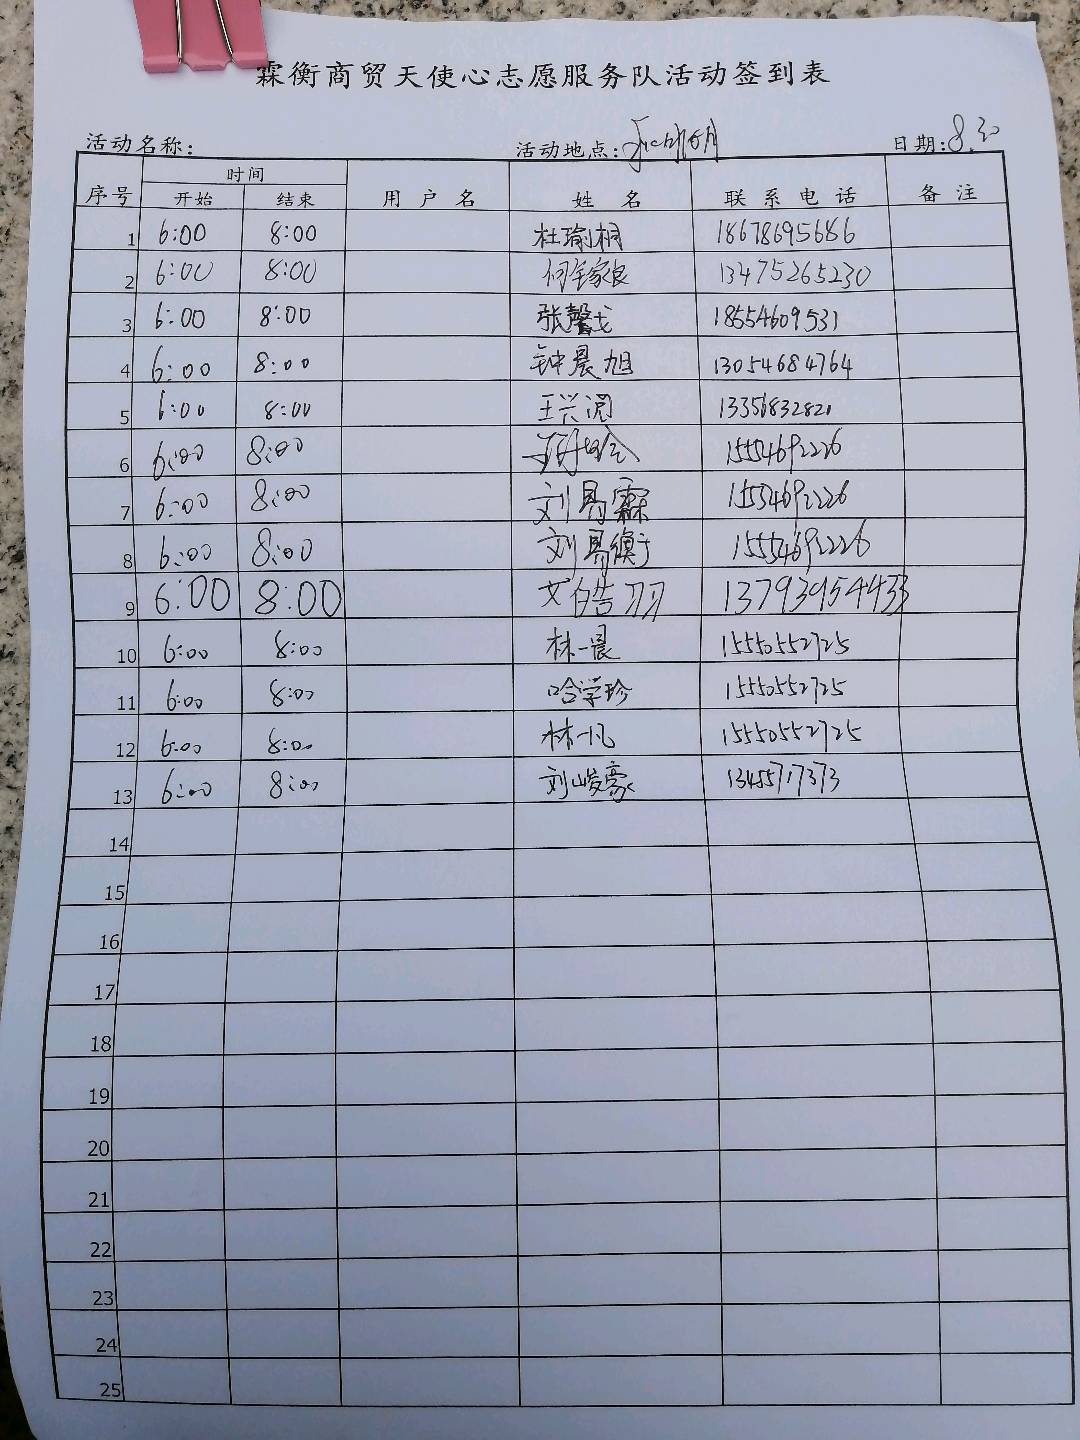 霖衡商贸天使心志愿服务队活动签到表
活动名称： 活动地点： 日期：8.30
序号 时间 用户名 姓名 联系电话 备注
开始 结束
1 6:00 8:00 杜瑜桐 18678695686
2 6:00 8:00 何家良 13475265230
3 6:00 8:00 张馨戈 18554609531
4 6:00 8:00 钟晨旭 13054684764
5 6:00 8:00 王兴阅 13356832820
6 6:00 8:00 15554692226
7 6:00 8:00 刘易霖 15554692226
8 6:00 8:00 刘易衡 15554692226
9 6:00 8:00 艾皓羽 13793954433
10 6:00 8:00 林一晨 15550552725
11 6:00 8:00 哈学珍 15550552725
12 6:00 8:00 林一凡 15550552725
13 6:00 8:00 刘峻豪 13455717373
14
15
16
17
18
19
20
21
22
23
24
25